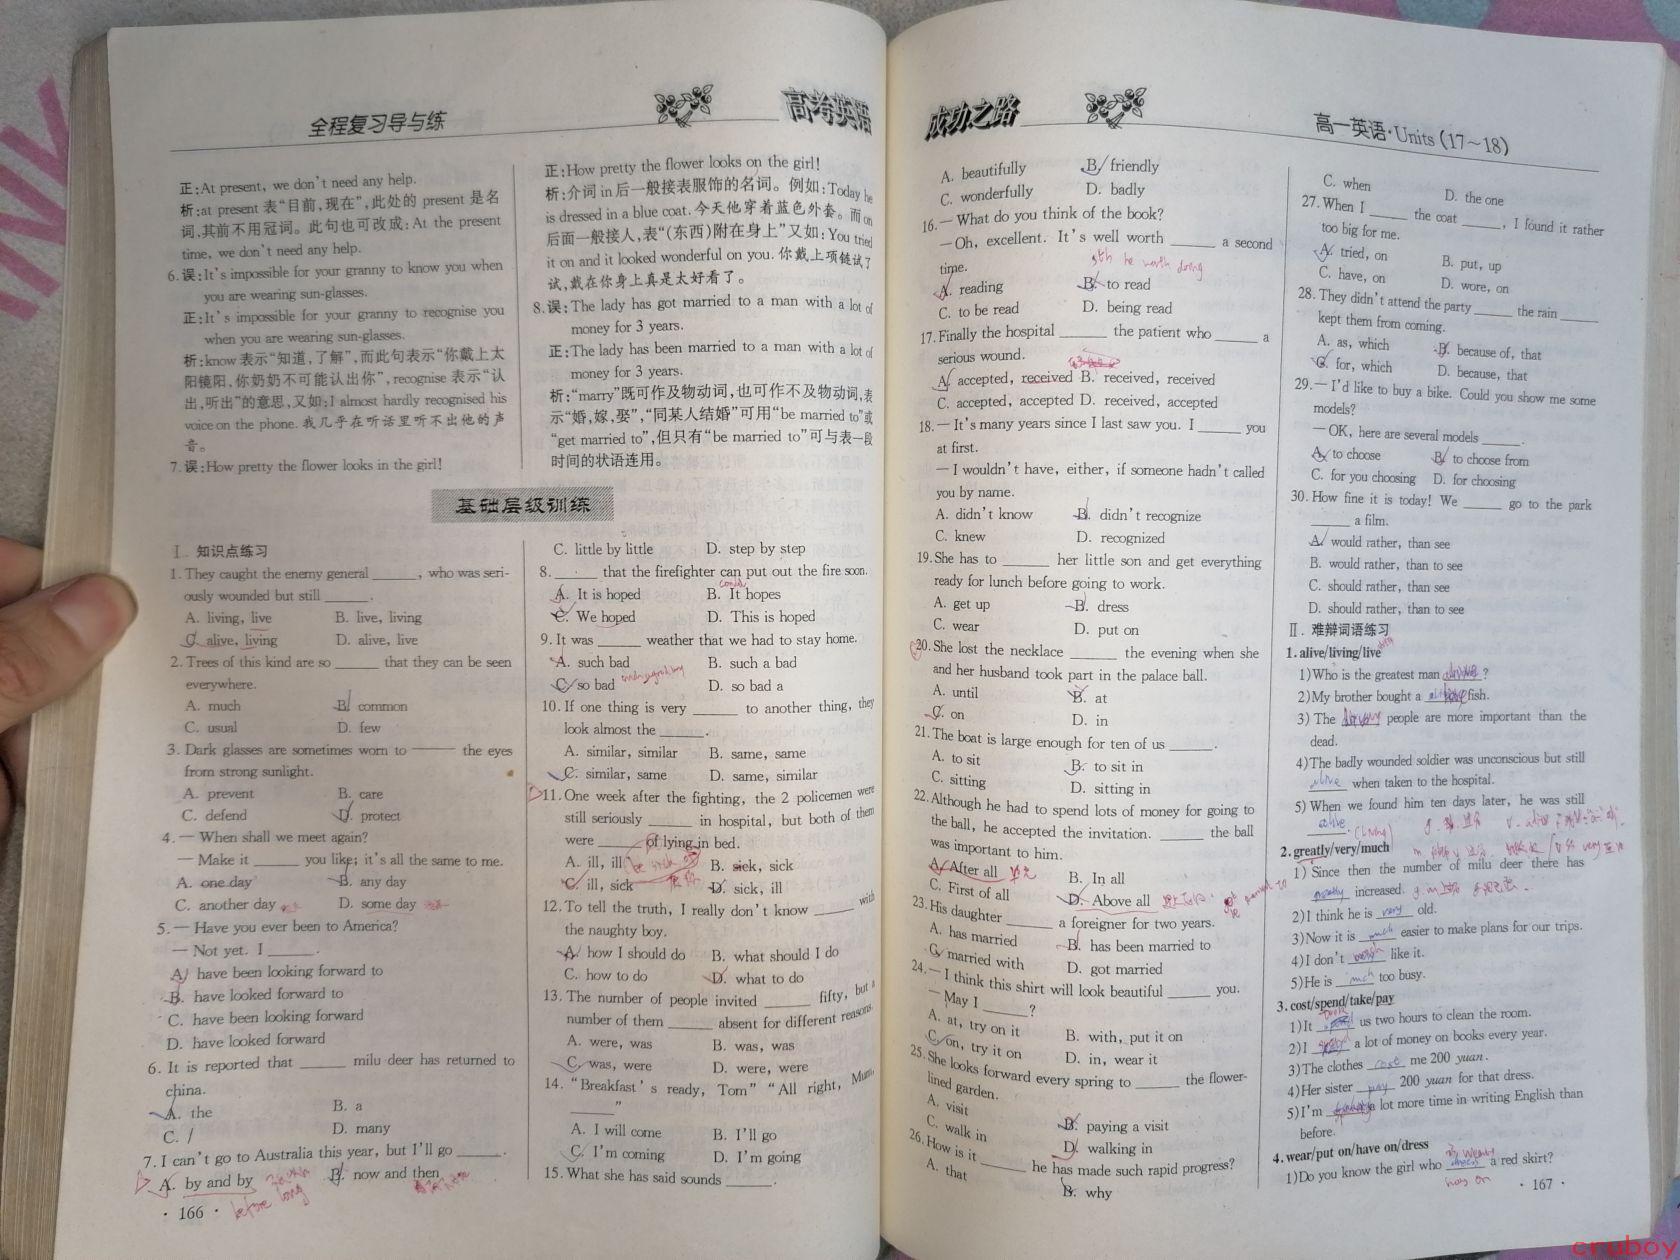 全程复习导与练
高考英语
正:At present, we don't need any help.
析:at present 表“目前,现在”,此处的 present 是名
词,其前不用冠词。此句也可改成:At the present
time, we don't need any help.
6.误:It's impossible for your granny to know you when
you are wearing sun-glasses.
正:It's impossible for your granny to recognise you
when you are wearing sun-glasses.
析:know 表示“知道,了解”,而此句表示“你戴上太
阳镜阳,你奶奶不可能认出你”,recognise 表示“认
出,听出”的意思,又如:I almost hardly recognised his
voice on the phone. 我几乎在听话里听不出他的声
音。
7.误:How pretty the flower looks in the girl!
正:How pretty the flower looks on the girl!
析:介词 in 后一般接表服饰的名词。例如:Today he
is dressed in a blue coat. 今天他穿着蓝色外套。而 on
后面一般接人,表“(东西)附在身上”又如:You tried
it on and it looked wonderful on you. 你戴上项链试了
试,戴在你身上真是太好看了。
8.误:The lady has got married to a man with a lot of
money for 3 years.
正:The lady has been married to a man with a lot of
money for 3 years.
析:“marry”既可作及物动词,也可作不及物动词,表
示“婚,嫁,娶”,“同某人结婚”可用“be married to”或
“get married to”,但只有“be married to”可与表一段
时间的状语连用。
基础层级训练
Ⅰ. 知识点练习
1. They caught the enemy general ______, who was seri-
ously wounded but still ______.
A. living, live B. live, living
C. alive, living D. alive, live
2. Trees of this kind are so ______ that they can be seen
everywhere.
A. much B. common
C. usual D. few
3. Dark glasses are sometimes worn to ______ the eyes
from strong sunlight.
A. prevent B. care
C. defend D. protect
4. — When shall we meet again?
— Make it ______ you like; it's all the same to me.
A. one day B. any day
C. another day D. some day
5. — Have you ever been to America?
— Not yet. I ______.
A. have been looking forward to
B. have looked forward to
C. have been looking forward
D. have looked forward
6. It is reported that ______ milu deer has returned to
china.
A. the B. a
C. / D. many
7. I can't go to Australia this year, but I'll go ______.
A. by and by B. now and then
before long
· 166 ·
C. little by little D. step by step
8. ______ that the firefighter can put out the fire soon.
could
A. It is hoped B. It hopes
C. We hoped D. This is hoped
9. It was ______ weather that we had to stay home.
A. such bad B. such a bad
C. so bad D. so bad a
10. If one thing is very ______ to another thing, they
look almost the ______.
A. similar, similar B. same, same
C. similar, same D. same, similar
11. One week after the fighting, the 2 policemen were
still seriously ______ in hospital, but both of them
were ______ of lying in bed.
A. ill, ill B. sick, sick
C. ill, sick D. sick, ill
12. To tell the truth, I really don't know ______ with
the naughty boy.
A. how I should do B. what should I do
C. how to do D. what to do
13. The number of people invited ______ fifty, but a
number of them ______ absent for different reasons.
A. were, was B. was, was
C. was, were D. were, were
14. “Breakfast's ready, Tom” “All right, Mum,
______”
A. I will come B. I'll go
C. I'm coming D. I'm going
15. What she has said sounds ______.
成功之路
高一英语·Units (17~18)
A. beautifully B. friendly
C. wonderfully D. badly
16. — What do you think of the book?
— Oh, excellent. It's well worth ______ a second
time.
sth be worth doing
A. reading B. to read
C. to be read D. being read
17. Finally the hospital ______ the patient who ______ a
serious wound.
A. accepted, received B. received, received
C. accepted, accepted D. received, accepted
18. — It's many years since I last saw you. I ______ you
at first.
— I wouldn't have, either, if someone hadn't called
you by name.
A. didn't know B. didn't recognize
C. knew D. recognized
19. She has to ______ her little son and get everything
ready for lunch before going to work.
A. get up B. dress
C. wear D. put on
20. She lost the necklace ______ the evening when she
and her husband took part in the palace ball.
A. until B. at
C. on D. in
21. The boat is large enough for ten of us ______.
A. to sit B. to sit in
C. sitting D. sitting in
22. Although he had to spend lots of money for going to
the ball, he accepted the invitation. ______ the ball
was important to him.
A. After all B. In all
C. First of all D. Above all
23. His daughter ______ a foreigner for two years.
A. has married B. has been married to
C. married with D. got married
24. — I think this shirt will look beautiful ______ you.
— May I ______?
A. at, try on it B. with, put it on
C. on, try it on D. in, wear it
25. She looks forward every spring to ______ the flower-
lined garden.
A. visit B. paying a visit
C. walk in D. walking in
26. How is it ______ he has made such rapid progress?
A. that B. why
C. when D. the one
27. When I ______ the coat ______, I found it rather
too big for me.
A. tried, on B. put, up
C. have, on D. wore, on
28. They didn't attend the party ______ the rain ______
kept them from coming.
A. as, which B. because of, that
C. for, which D. because, that
29. — I'd like to buy a bike. Could you show me some
models?
— OK, here are several models ______.
A. to choose B. to choose from
C. for you choosing D. for choosing
30. How fine it is today! We ______ go to the park
______ a film.
A. would rather, than see
B. would rather, than to see
C. should rather, than see
D. should rather, than to see
Ⅱ. 难辩词语练习
1. alive/living/live
1) Who is the greatest man ______?
2) My brother bought a ______ fish.
3) The ______ people are more important than the
dead.
4) The badly wounded soldier was unconscious but still
alive when taken to the hospital.
5) When we found him ten days later, he was still
alive. (living)
2. greatly/very/much
1) Since then the number of milu deer there has
greatly increased.
2) I think he is very old.
3) Now it is much easier to make plans for our trips.
4) I don't much like it.
5) He is much too busy.
3. cost/spend/take/pay
1) It took us two hours to clean the room.
2) I ______ a lot of money on books every year.
3) The clothes cost me 200 yuan.
4) Her sister pay 200 yuan for that dress.
5) I'm ______ a lot more time in writing English than
before.
4. wear/put on/have on/dress
1) Do you know the girl who ______ a red skirt?
has on
· 167 ·
cruboy